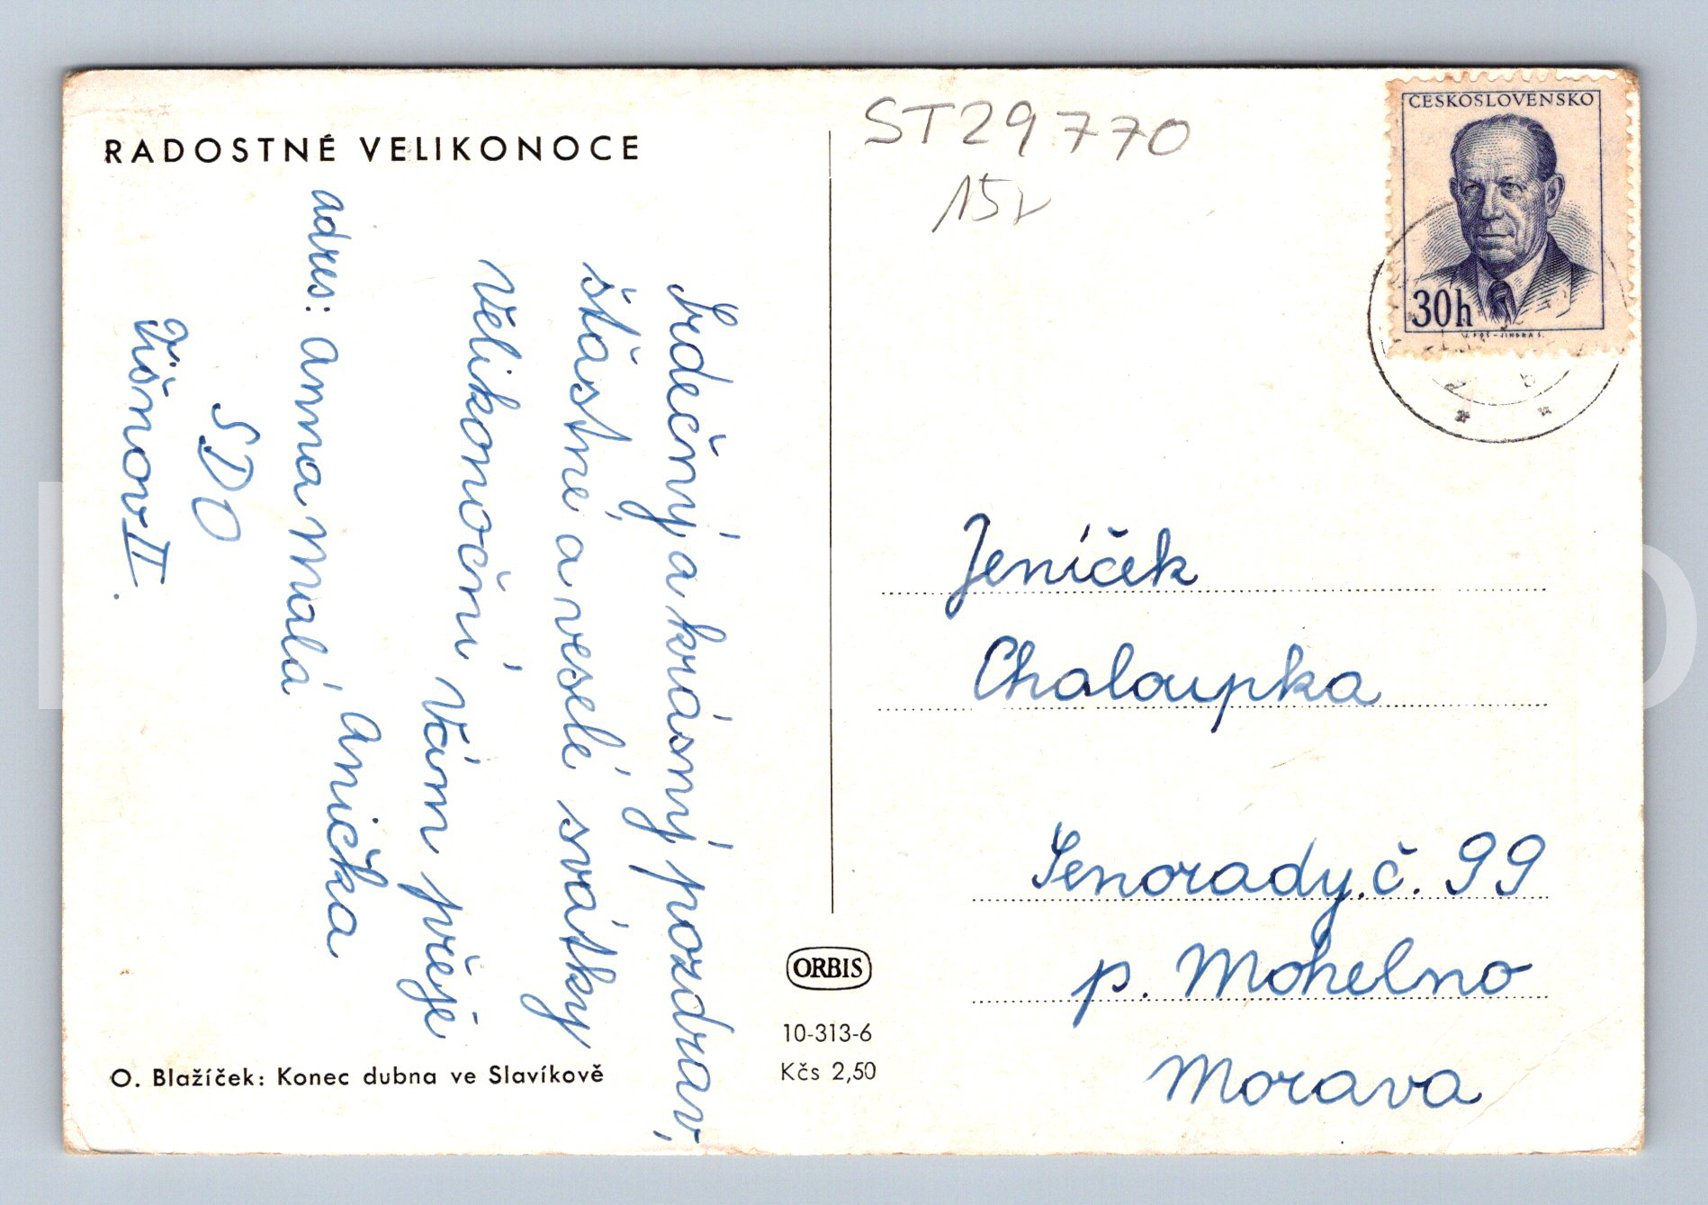 RADOSTNÉ VELIKONOCE
Srdečný a krásný pozdrav,
šťastné a veselé svátky
Velikonoční Vám přeje
Anička
adres: Anna Malá
SDO
Tišnov II.
O. Blažíček: Konec dubna ve Slavíkově
ST29770
15,-
ČESKOSLOVENSKO
30h
Jeníček
Chaloupka
Senorady č. 99
p. Mohelno
Morava
ORBIS
10-313-6
Kčs 2,50